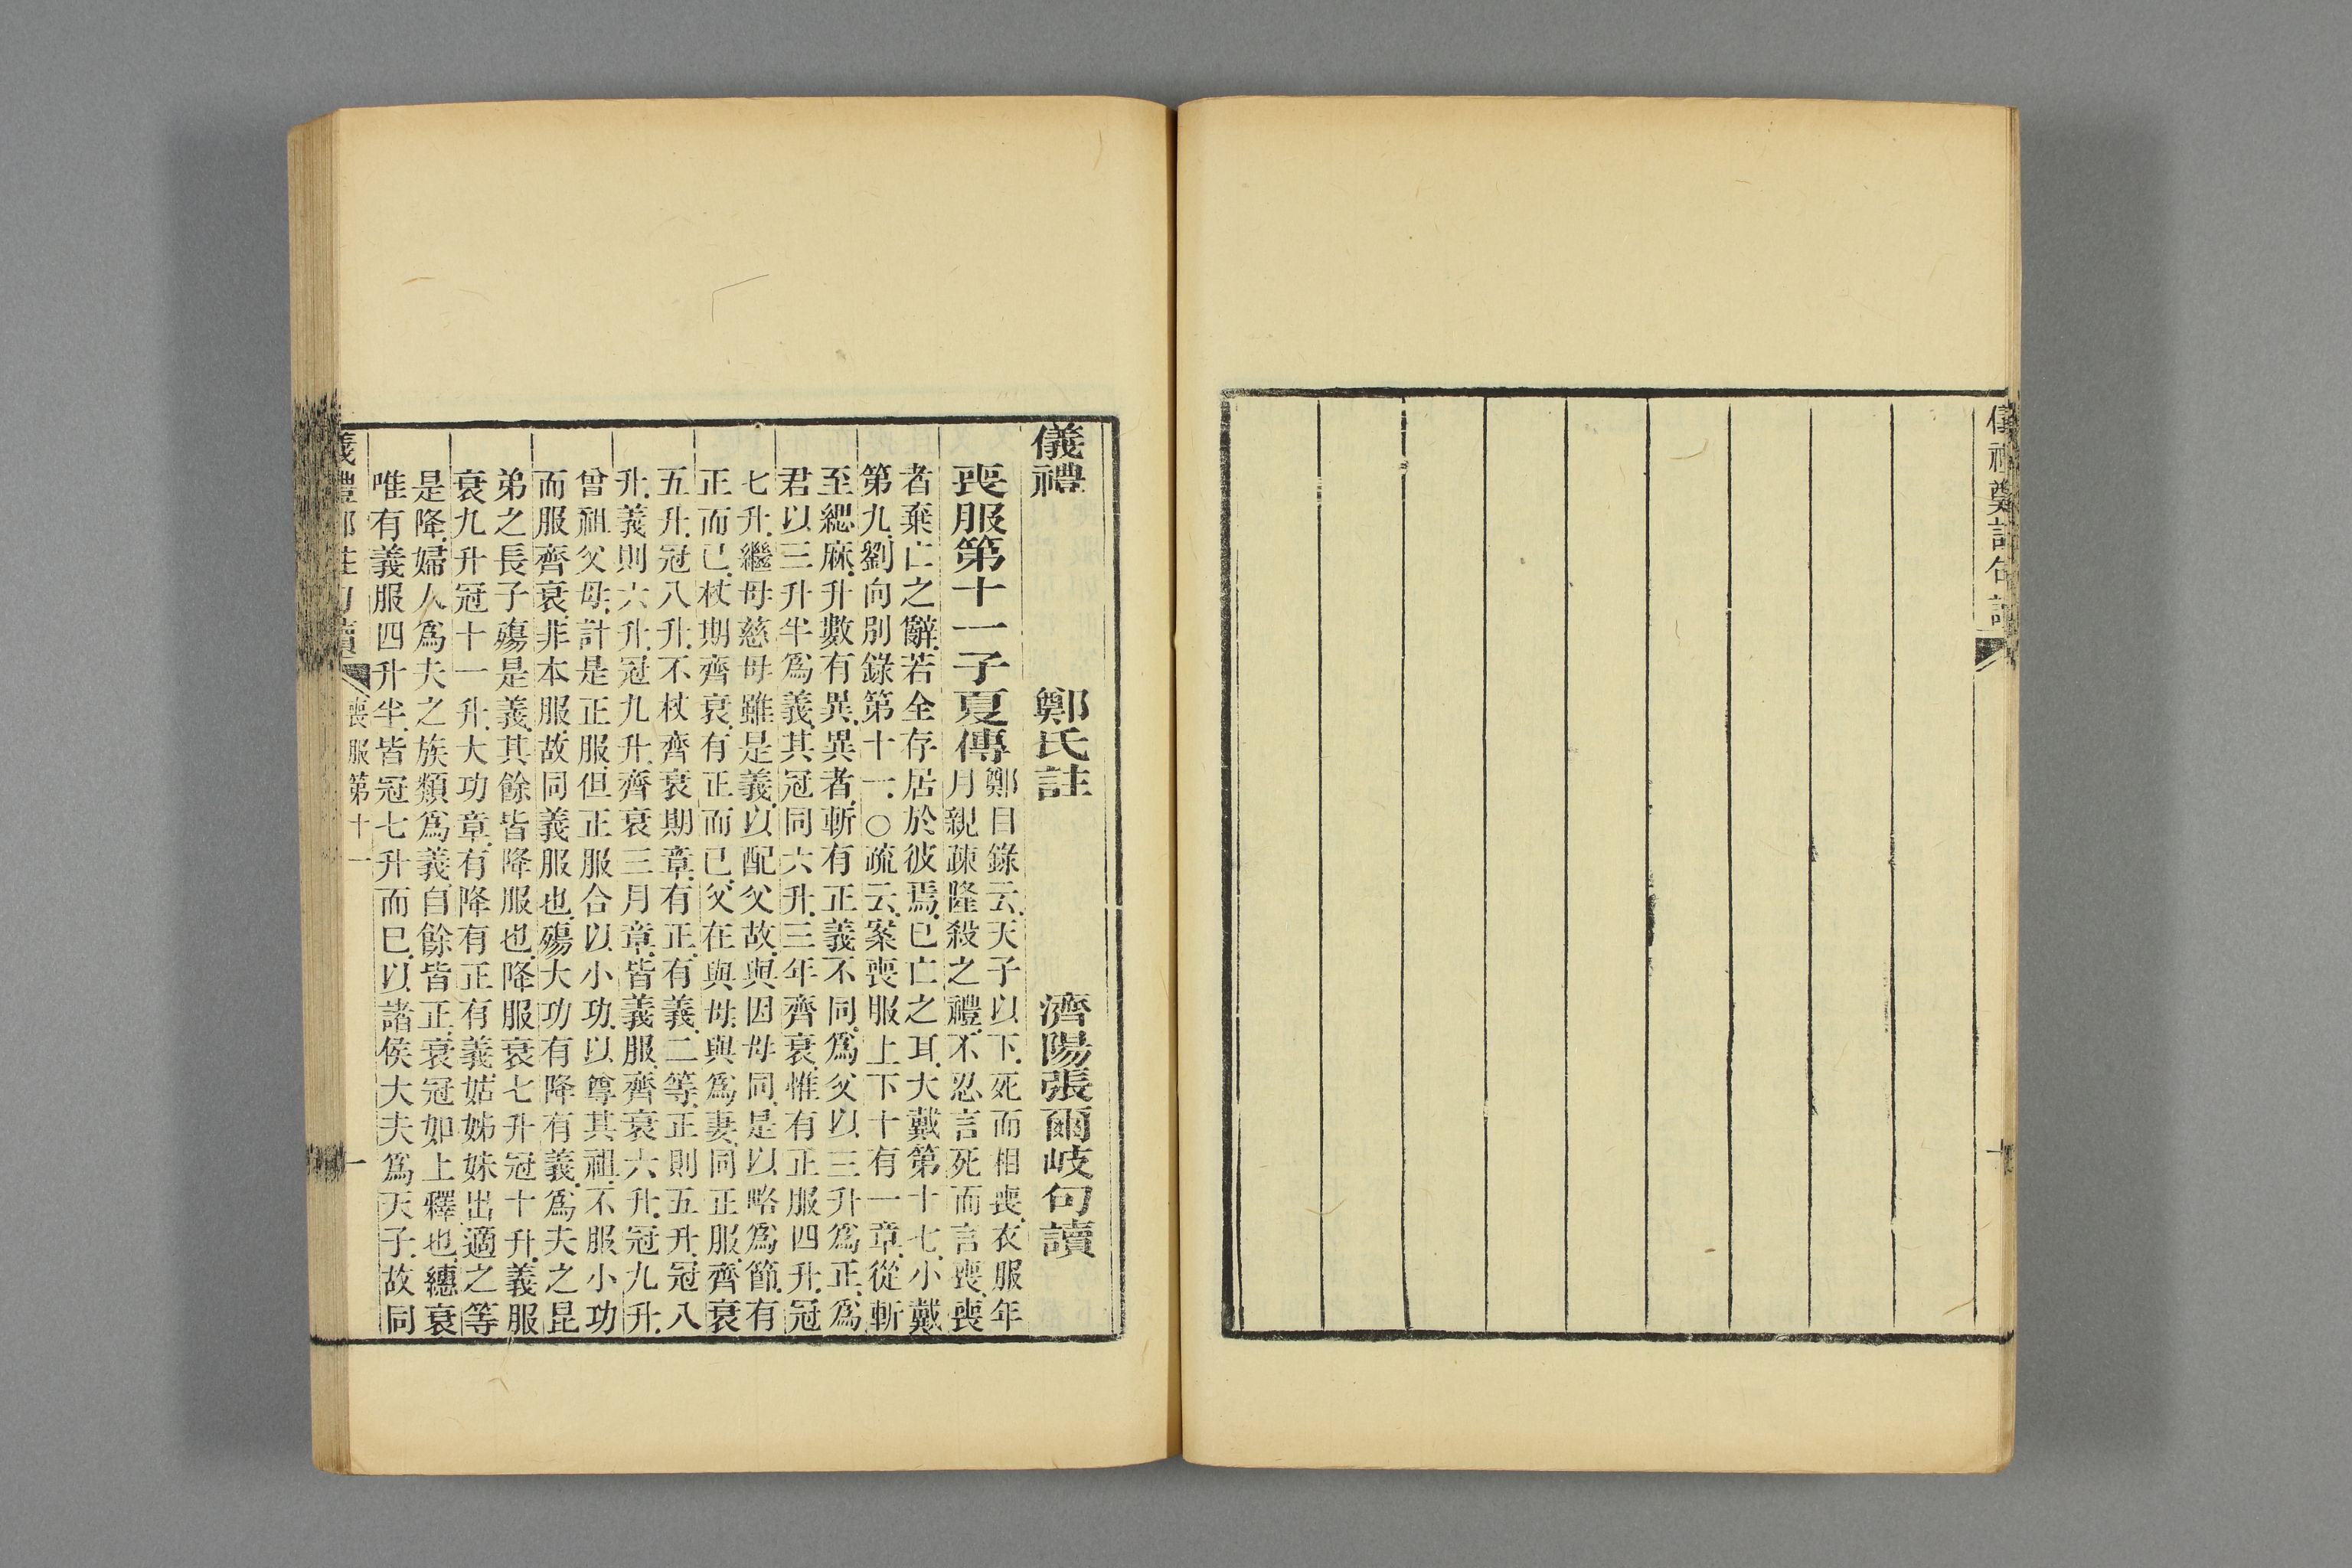 儀禮鄭註句讀
十
儀禮 鄭氏註 濟陽張爾岐句讀
喪服第十一子夏傳
鄭目錄云.天子以下.死而相喪.衣服年
月親疎隆殺之禮.不忍言死而言喪.喪
者棄亡之辭.若全存居於彼焉.已亡之耳.大戴第十七.小戴
第九.劉向別錄第十一.○疏云.案喪服上下十有一章.從斬
至緦麻.升數有異.異者.斬有正義不同.爲父以三升爲正.爲
君以三升半爲義.其冠同六升.三年齊衰.惟有正服四升.冠
七升.繼母慈母雖是義.以配父故.與因母同.是以略爲節.有
正而已.杖期齊衰.有正而已.父在與母.與爲妻.同正服.齊衰
五升.冠八升.不杖齊衰期章.有正有義.二等.正則五升.冠八
升.義則六升.冠九升.齊衰三月章.皆義服.齊衰六升.冠九升.
曾祖父母.計是正服.但正服合以小功.以尊其祖.不服小功
而服齊衰.非本服.故同義服也.殤大功有降有義.爲夫之昆
弟之長子殤是義.其餘皆降服也.降服衰七升冠十升.義服
衰九升冠十一升.大功章.有降有正有義.姑姊妹出適之等
是降.婦人爲夫之族類爲義.自餘皆正.衰冠如上釋也.繐衰
唯有義服四升半.皆冠七升而已.以諸侯大夫爲天子.故同
儀禮鄭註句讀
喪服第十一
一